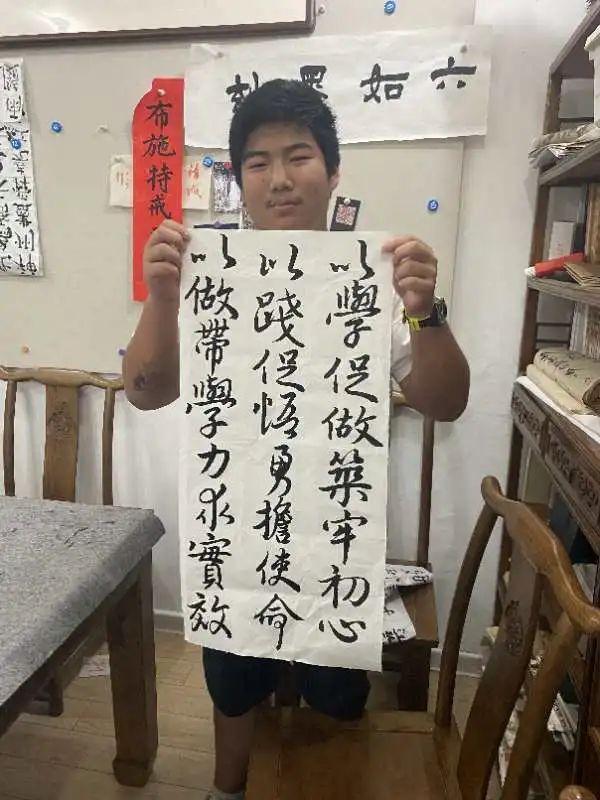 六如墨
布施持戒
以學促做築牢初心
以踐促悟勇擔使命
以做帶學力求實效